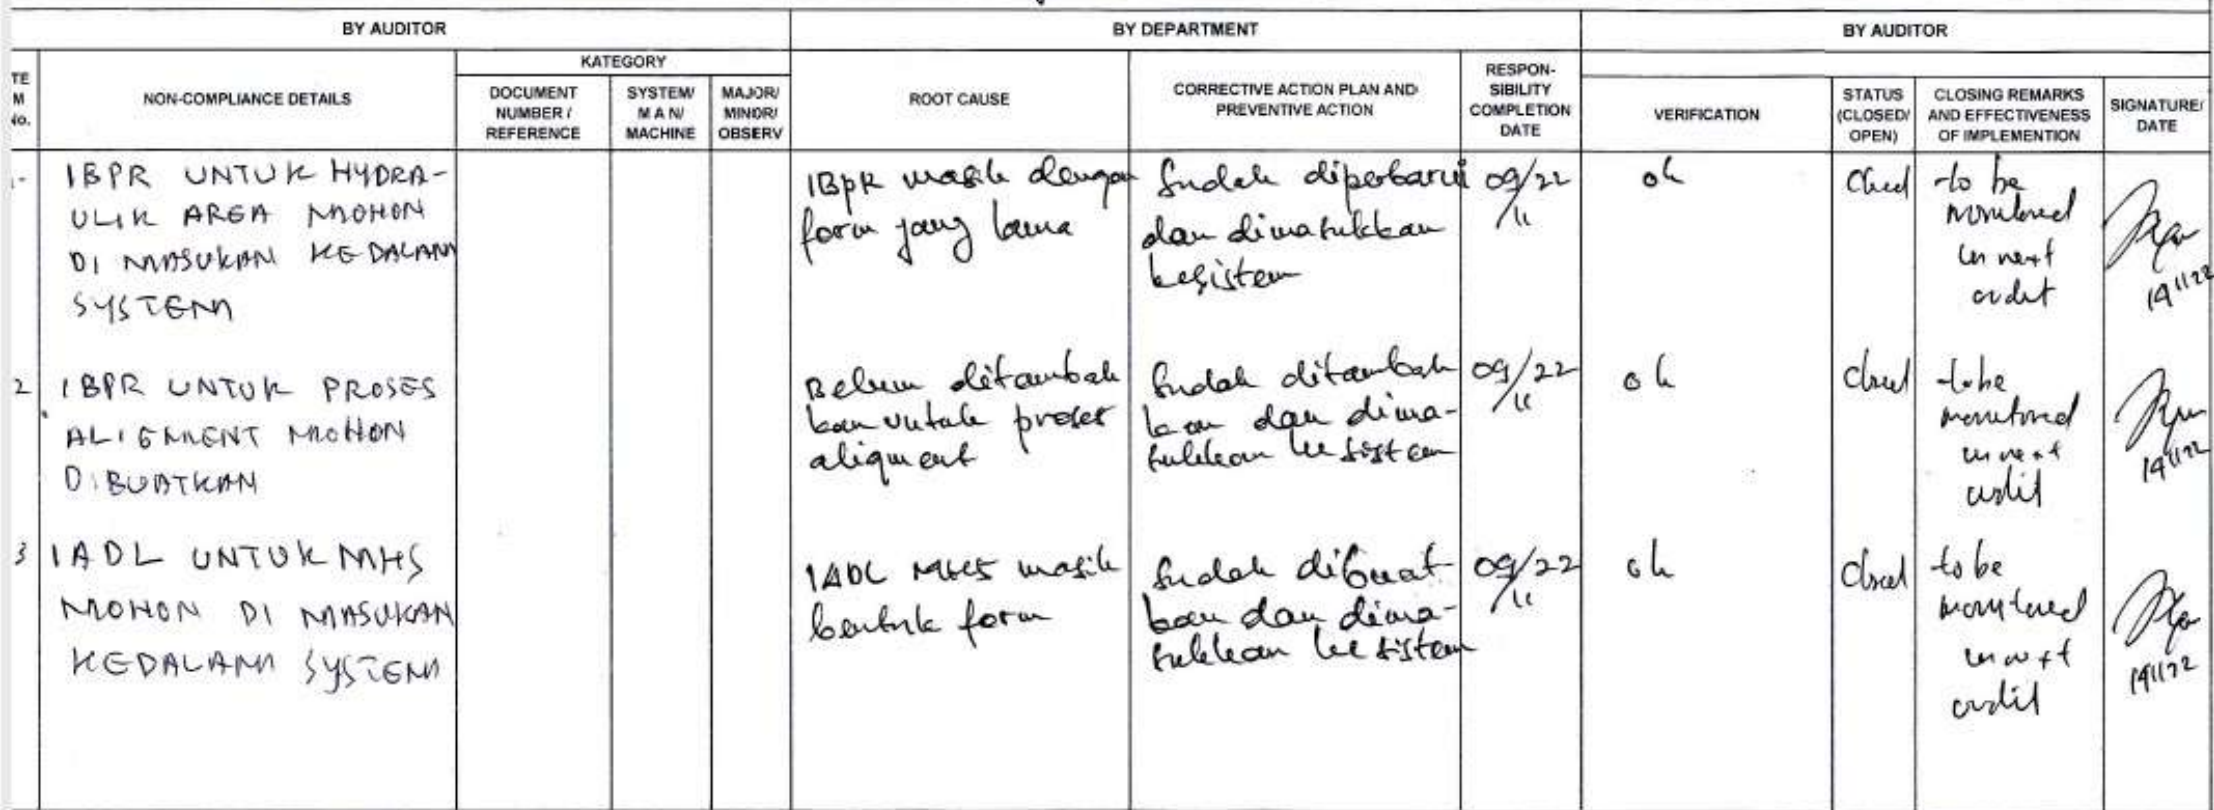 BY AUDITOR
BY DEPARTMENT
BY AUDITOR
TE
M
No.
NON-COMPLIANCE DETAILS
KATEGORY
DOCUMENT
NUMBER /
REFERENCE
SYSTEM/
M A N/
MACHINE
MAJOR/
MINOR/
OBSERV
ROOT CAUSE
CORRECTIVE ACTION PLAN AND
PREVENTIVE ACTION
RESPON-
SIBILITY
COMPLETION
DATE
VERIFICATION
STATUS
(CLOSED/
OPEN)
CLOSING REMARKS
AND EFFECTIVENESS
OF IMPLEMENTION
SIGNATURE/
DATE
1-
IBPR UNTUK HYDRA-
ULIK AREA MOHON
DI MASUKAN KEDALAM
SYSTEM
IBPR masih dengan
form yang lama
Sudah diperbarui
dan dimasukkan
kesistem
09/22
/11
ok
Closed
to be
monitored
in next
audit
2
IBPR UNTUK PROSES
ALIGMENT MOHON
DIBUATKAN
Belum ditambah
kan untuk proses
aligment
Sudah ditambah
kan dan dima-
sukkan ke sistem
09/22
/11
ok
closed
to be
monitored
in next
audit
3
IADL UNTUK MHS
MOHON DI MASUKAN
KEDALAM SYSTEM
IADL MHS masih
bentuk form
Sudah dibuat
kan dan dima-
sukkan ke sistem
09/22
/11
ok
Closed
to be
monitored
in next
audit